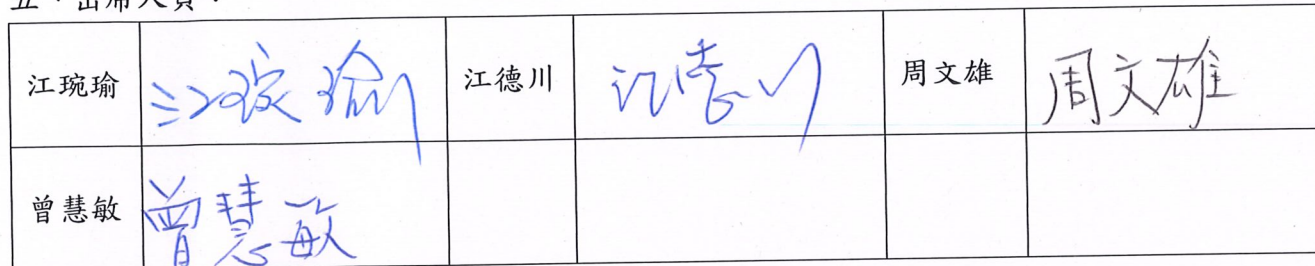 五、出席人員：
江琬瑜 江琬瑜 江德川 江德川 周文雄 周文雄
曾慧敏 曾慧敏